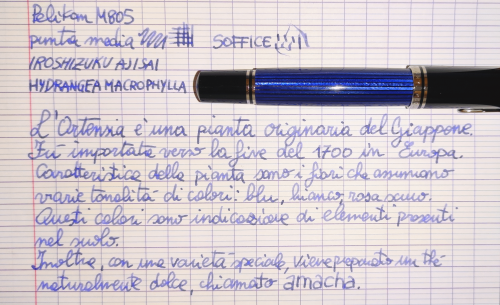 Pelikan M805
punta media SOFFICE
IROSHIZUKU AJISAI
HYDRANGEA MACROPHYLLA
L'Ortensia è una pianta originaria del Giappone.
Fù importata verso la fine del 1700 in Europa.
Caratteristica della pianta sono i fiori che assumono
varie tonalità di colori: blu, bianco, rosa scuro.
Questi colori sono indicazione di elementi presenti
nel suolo.
Inoltre, con una varietà speciale, viene preparato un thè
naturalmente dolce, chiamato amacha.